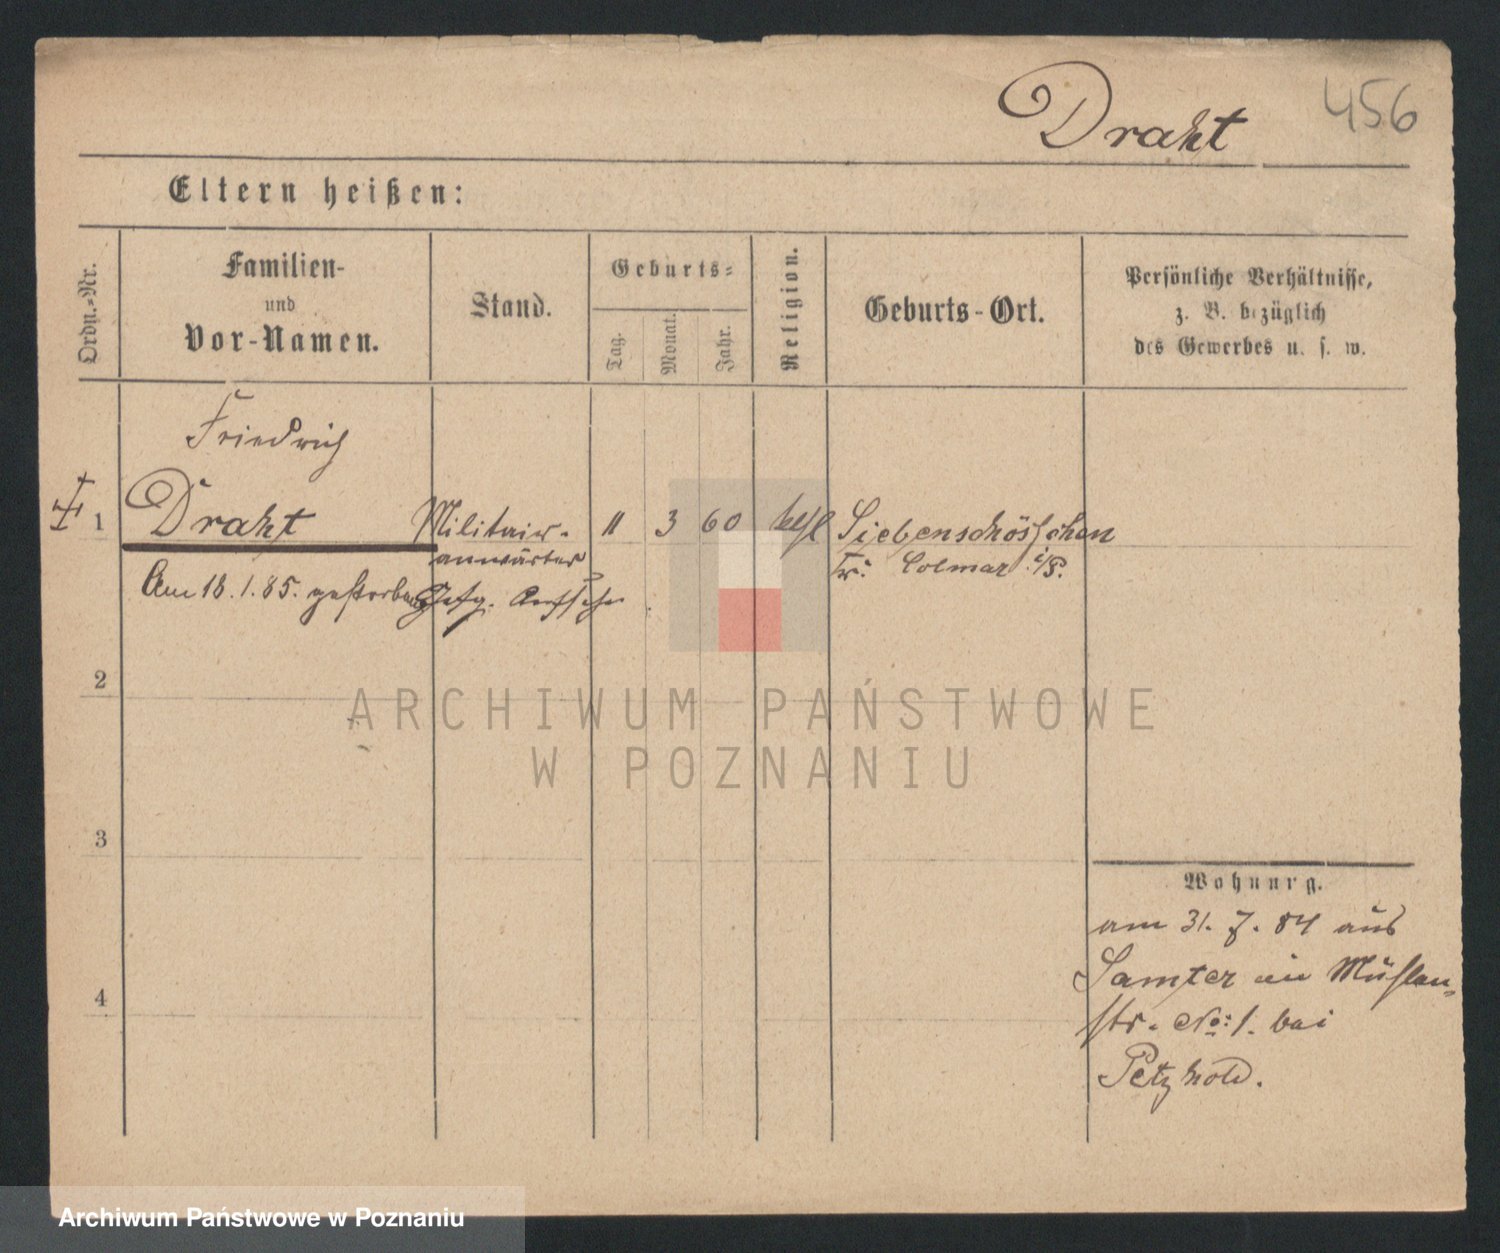 Draht
456
Eltern heißen:
Ordn.-Nr.
Familien-
und
Vor-Namen.
Stand.
Geburts-
Tag.
Monat.
Jahr.
Religion.
Geburts-Ort.
Persönliche Verhältnisse,
z. B. bezüglich
des Gewerbes u. s. w.
Friedrich
1 Draht Militair- 11 3 60 Siebenschösschen
anwärter Kr: Colmar i/P.
Am 18.1.85. gestorben Gefg. Aufseher
2
3
4
Wohnung.
am 31. 7. 84 aus
Samter in Mühlen-
str. No: 1. bei
Petzhold.
ARCHIWUM PAŃSTWOWE
W POZNANIU
Archiwum Państwowe w Poznaniu